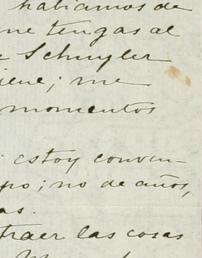 habiamos de
me tengas al
Schuyler
iene; me
momentos
estoy conven-
po; no de años,
as.
traer las cosas